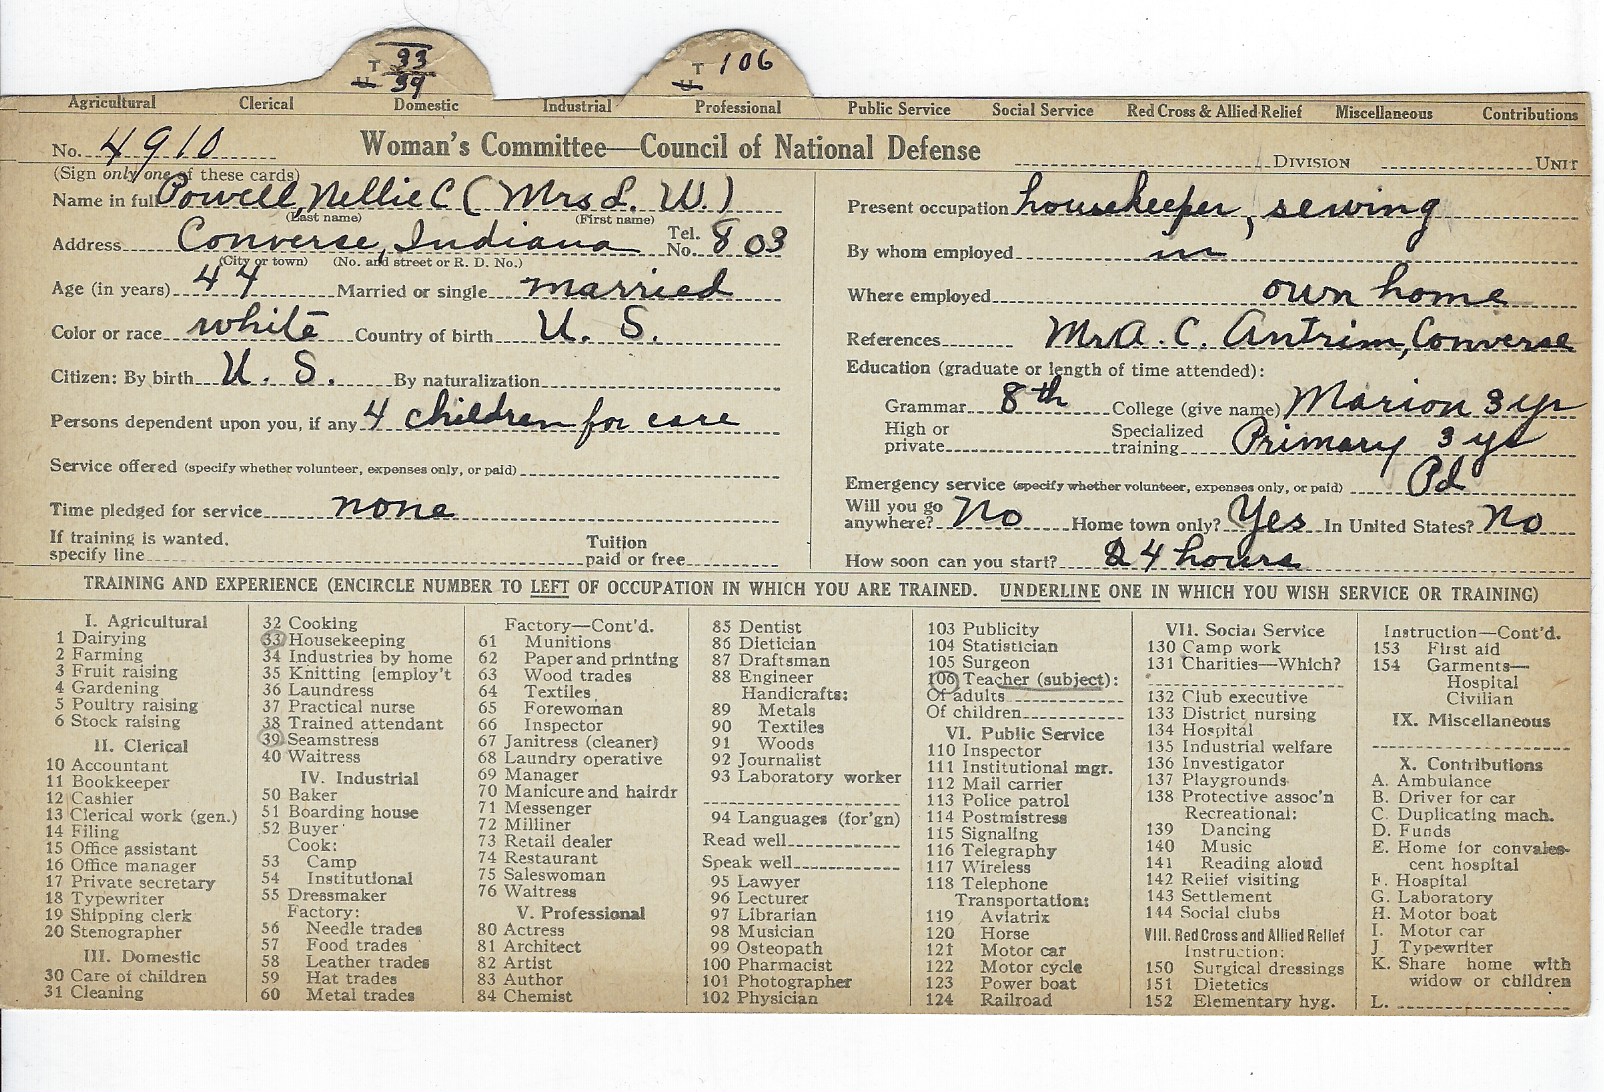 T 33 T 106
U 39 U
Agricultural Clerical Domestic Industrial Professional Public Service Social Service Red Cross & Allied Relief Miscellaneous Contributions
No. 4910 Woman's Committee—Council of National Defense DIVISION UNIT
(Sign only one of these cards)
Name in full Powell, Nellie C (Mrs L. W.)
(Last name) (First name)
Address Converse, Indiana Tel. No. 803
(City or town) (No. and street or R. D. No.)
Age (in years) 44 Married or single married
Color or race white Country of birth U. S.
Citizen: By birth U. S. By naturalization
Persons dependent upon you, if any 4 children for care
Service offered (specify whether volunteer, expenses only, or paid)
Time pledged for service none
If training is wanted, Tuition
specify line paid or free
Present occupation housekeeper, sewing
By whom employed in
Where employed own home
References Mr A. C. Antrim, Converse
Education (graduate or length of time attended):
Grammar 8th College (give name) Marion 3 yr
High or Specialized
private training Primary 3 ys
Emergency service (specify whether volunteer, expenses only, or paid) Pd
Will you go
anywhere? No Home town only? Yes In United States? No
How soon can you start? 24 hours
TRAINING AND EXPERIENCE (ENCIRCLE NUMBER TO LEFT OF OCCUPATION IN WHICH YOU ARE TRAINED. UNDERLINE ONE IN WHICH YOU WISH SERVICE OR TRAINING)
I. Agricultural
1 Dairying
2 Farming
3 Fruit raising
4 Gardening
5 Poultry raising
6 Stock raising
II. Clerical
10 Accountant
11 Bookkeeper
12 Cashier
13 Clerical work (gen.)
14 Filing
15 Office assistant
16 Office manager
17 Private secretary
18 Typewriter
19 Shipping clerk
20 Stenographer
III. Domestic
30 Care of children
31 Cleaning
32 Cooking
33 Housekeeping
34 Industries by home
35 Knitting [employ't
36 Laundress
37 Practical nurse
38 Trained attendant
39 Seamstress
40 Waitress
IV. Industrial
50 Baker
51 Boarding house
52 Buyer
Cook:
53 Camp
54 Institutional
55 Dressmaker
Factory:
56 Needle trades
57 Food trades
58 Leather trades
59 Hat trades
60 Metal trades
Factory—Cont'd.
61 Munitions
62 Paper and printing
63 Wood trades
64 Textiles
65 Forewoman
66 Inspector
67 Janitress (cleaner)
68 Laundry operative
69 Manager
70 Manicure and hairdr
71 Messenger
72 Milliner
73 Retail dealer
74 Restaurant
75 Saleswoman
76 Waitress
V. Professional
80 Actress
81 Architect
82 Artist
83 Author
84 Chemist
85 Dentist
86 Dietician
87 Draftsman
88 Engineer
Handicrafts:
89 Metals
90 Textiles
91 Woods
92 Journalist
93 Laboratory worker
94 Languages (for'gn)
Read well
Speak well
95 Lawyer
96 Lecturer
97 Librarian
98 Musician
99 Osteopath
100 Pharmacist
101 Photographer
102 Physician
103 Publicity
104 Statistician
105 Surgeon
106 Teacher (subject):
Of adults
Of children
VI. Public Service
110 Inspector
111 Institutional mgr.
112 Mail carrier
113 Police patrol
114 Postmistress
115 Signaling
116 Telegraphy
117 Wireless
118 Telephone
Transportation:
119 Aviatrix
120 Horse
121 Motor car
122 Motor cycle
123 Power boat
124 Railroad
VII. Social Service
130 Camp work
131 Charities—Which?
132 Club executive
133 District nursing
134 Hospital
135 Industrial welfare
136 Investigator
137 Playgrounds
138 Protective assoc'n
Recreational:
139 Dancing
140 Music
141 Reading aloud
142 Relief visiting
143 Settlement
144 Social clubs
VIII. Red Cross and Allied Relief
Instruction:
150 Surgical dressings
151 Dietetics
152 Elementary hyg.
Instruction—Cont'd.
153 First aid
154 Garments—
Hospital
Civilian
IX. Miscellaneous
X. Contributions
A. Ambulance
B. Driver for car
C. Duplicating mach.
D. Funds
E. Home for convales-
cent hospital
F. Hospital
G. Laboratory
H. Motor boat
I. Motor car
J. Typewriter
K. Share home with
widow or children
L.